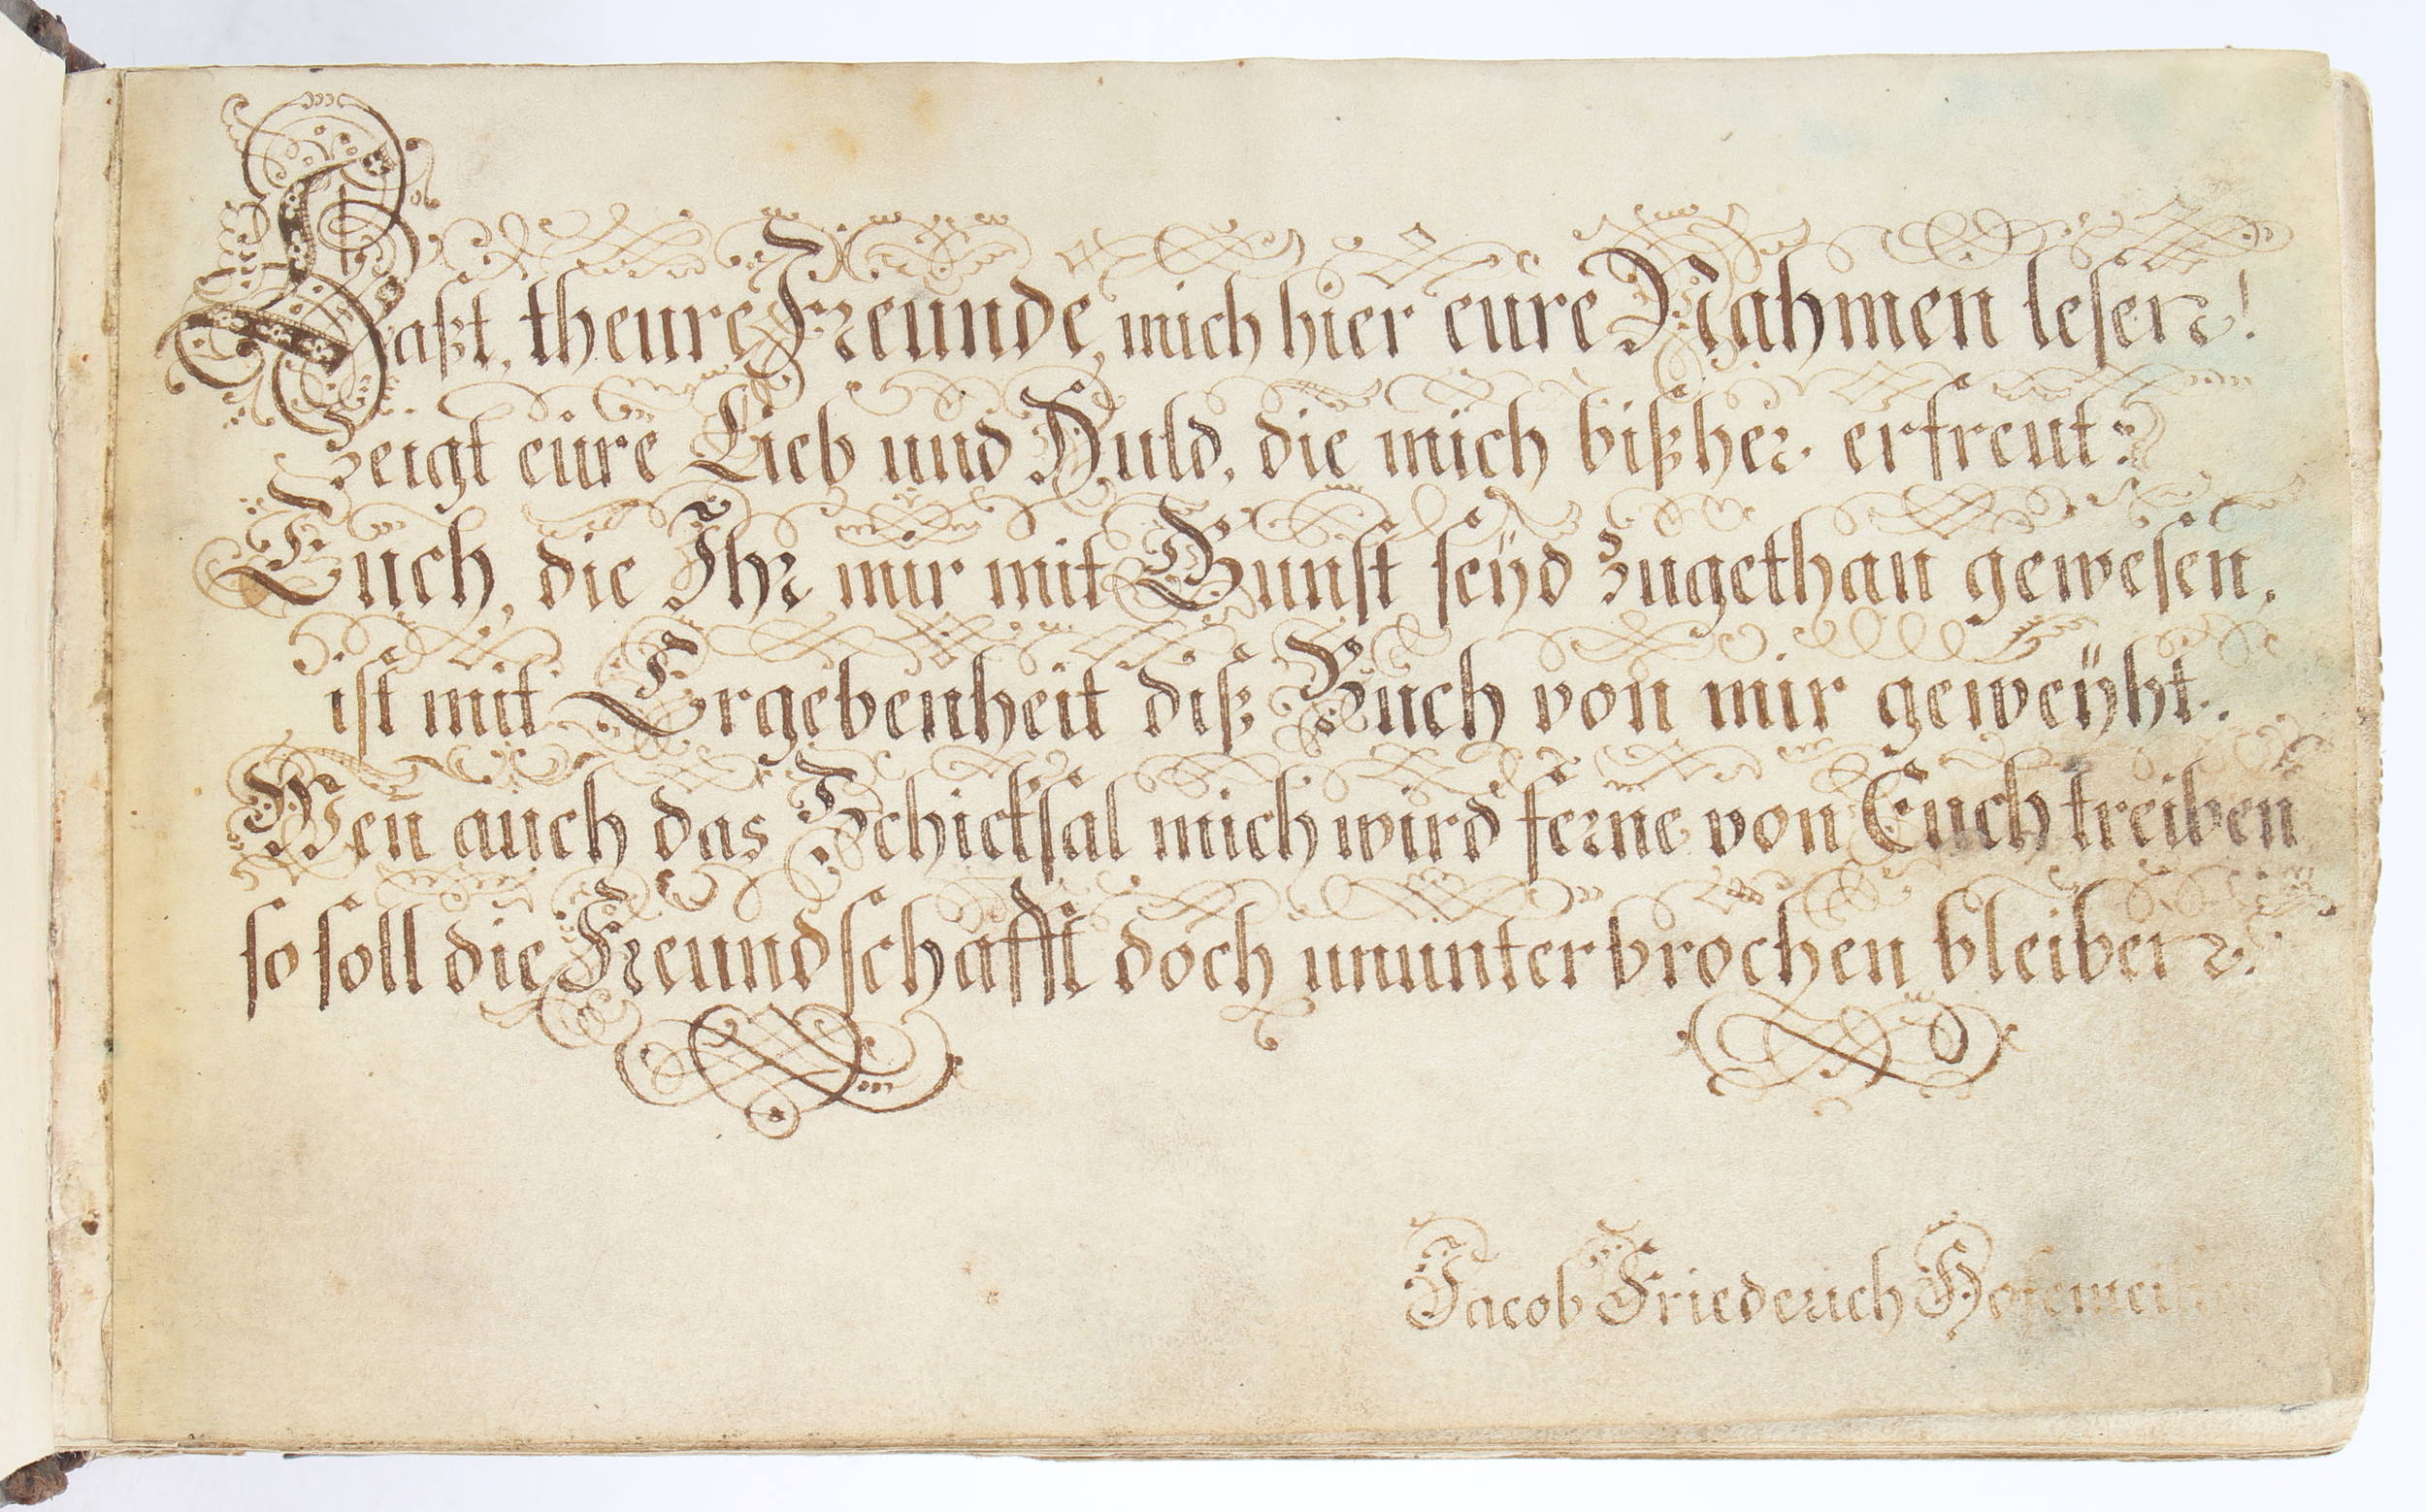 Laßt, theure Freunde, mich hier eüre Nahmen lesen!
Zeigt eüre Lieb und Huld, die mich bißher erfreut:
Euch, die Ihr mir mit Gunst seÿd zugethan gewesen,
ist mit Ergebenheit diß Buch von mir geweÿht.
Wen̄ auch das Schicksal mich wird ferne von Euch treiben
so soll die Freundschafft doch ununterbrochen bleiben.
Jacob Friederich